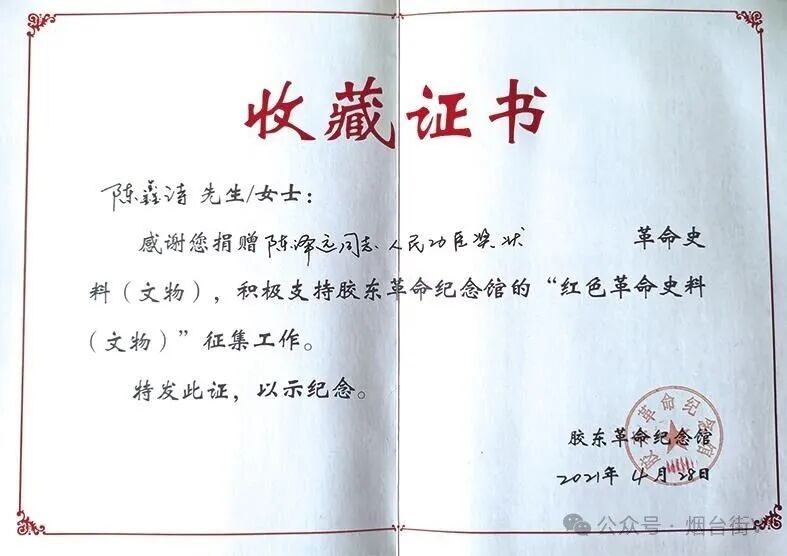 收藏证书
陈鑫涛 先生/女士：
感谢您捐赠陈泽远同志人民功臣奖状 革命史
料（文物），积极支持胶东革命纪念馆的“红色革命史料
（文物）”征集工作。
特发此证，以示纪念。
胶东革命纪念馆
2021年4月28日
胶东革命纪念馆
公众号·烟台街